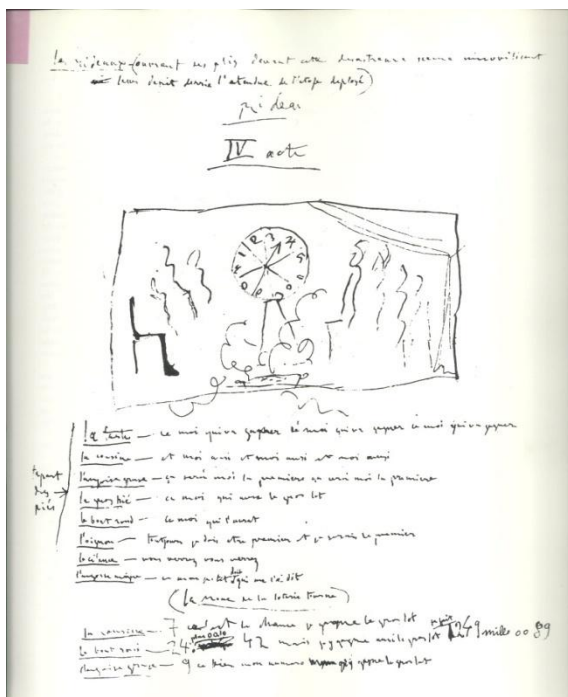 le rideau (ouvrant ses plis devant cette desastreuse scene immobilisent
leur depit derrie l'etendue de l'etofe deployé)
rideau
IV acte
la tarte — ce moi qui va gagner ce moi qui va gagner ce moi qui va gagner
la cousine — et moi ausi et moi ausi et moi ausi
l'angoise grase — ça sera moi la premiere ça sera moi la premiere
le gros pié — ce moi qui aura le gros lot
le bout rond — ce moi qui l'aurat
l'oignon — toujours je dois etre premier et je serais le premier
le silence — vous verrez vous verrez
l'angoise maigre — ce mon petit doit qui me l'a dit
tapant
des
piés
(la roue de la loterie tourne)
la cousine — 7 c'est la chance je gagne le gros lot
le bout rond — 24 42 mais je gagne ausi le gros lot 249 mille 00 89
l'angoise grase — 9 ce bien mon numero gagne le gros lot